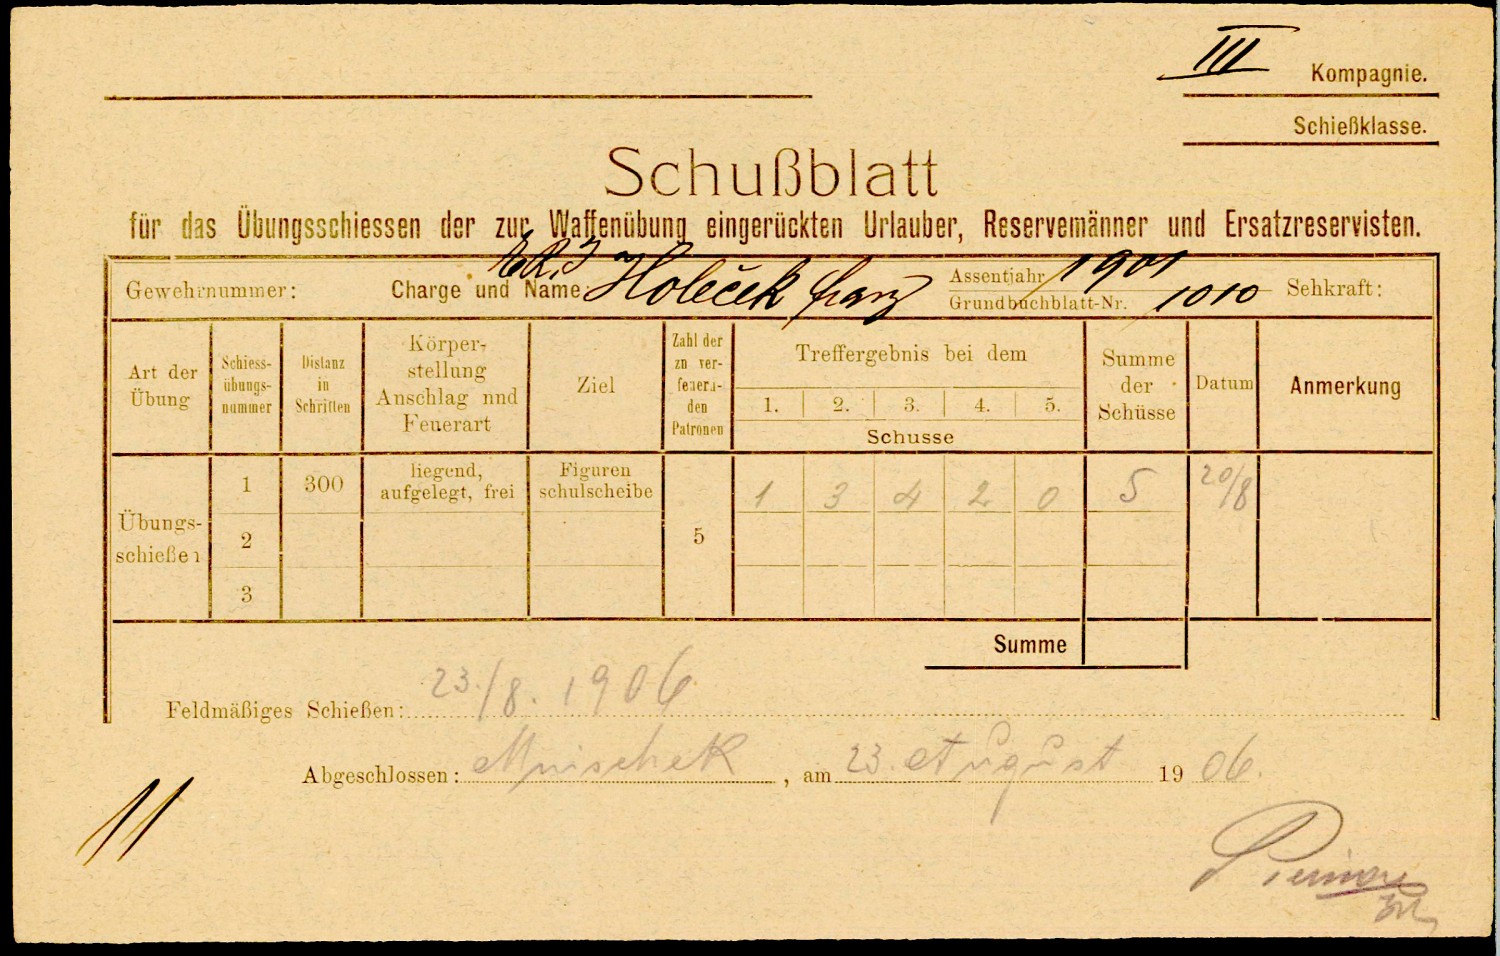 III Kompagnie.
Schießklasse.
Schußblatt
für das Übungsschiessen der zur Waffenübung eingerückten Urlauber, Reservemänner und Ersatzreservisten.
Gewehrnummer: Charge und Name: Holeček Franz Assentjahr 1901 Sehkraft:
Grundbuchblatt-Nr. 1010
Art der Übung Schiess-übungs-nummer Distanz in Schritten Körper-stellung Anschlag nnd Feuerart Ziel Zahl der zn ver-feuern-den Patronen Treffergebnis bei dem Summe der Schüsse Datum Anmerkung
1. 2. 3. 4. 5.
Schusse
Übungs-schießen 1 300 liegend, aufgelegt, frei Figuren schulscheibe 5 1 3 4 2 0 5 20/8
2
3
Summe
Feldmäßiges Schießen: 23./8. 1906
Abgeschlossen: Mnischek, am 23. August 1906.
11